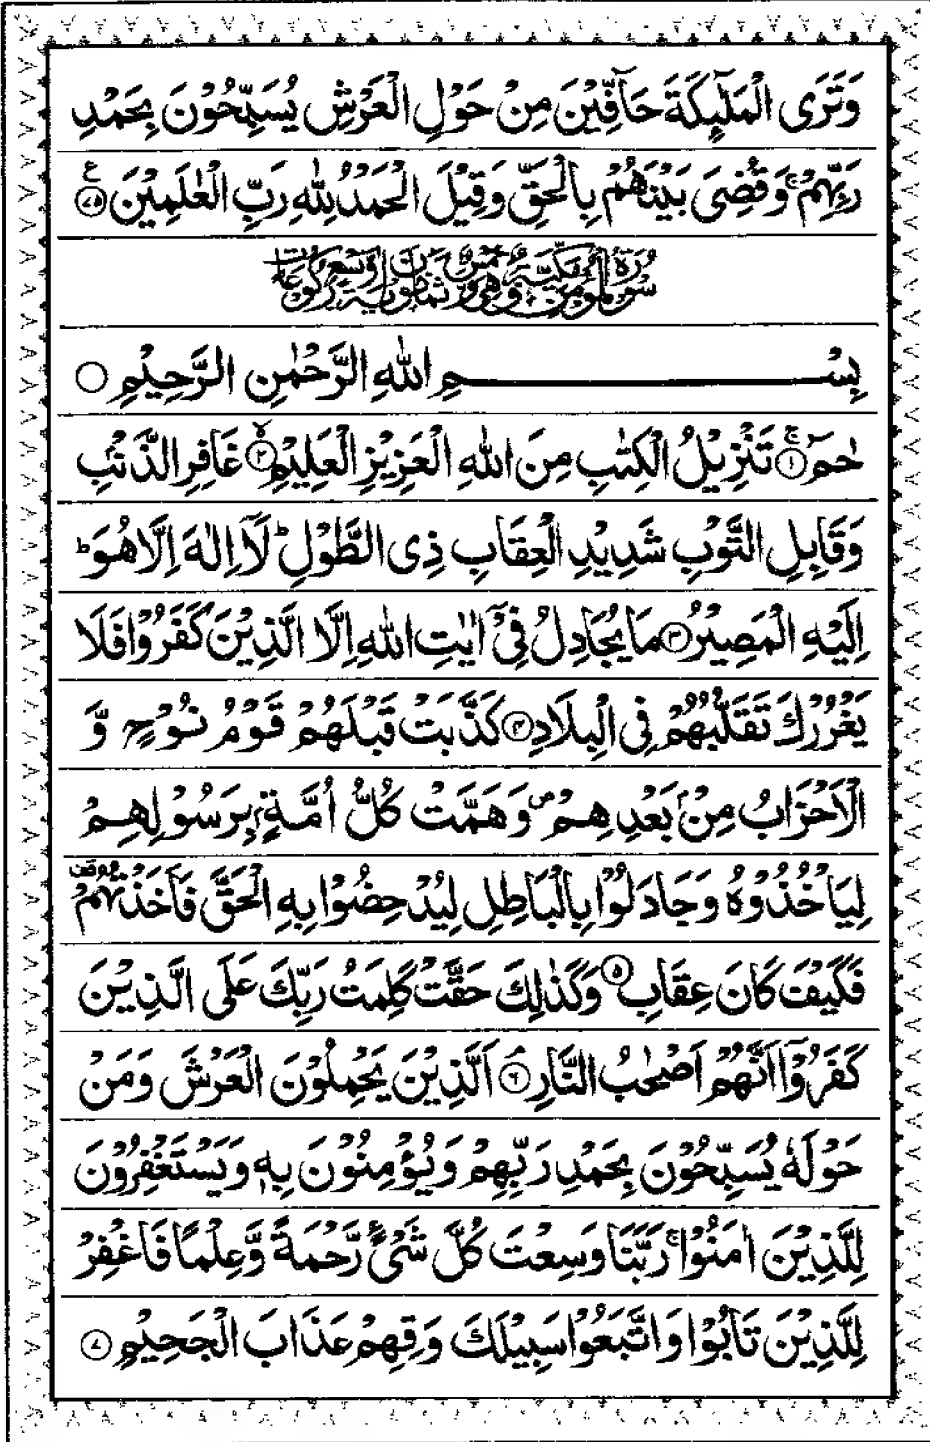 وَتَرَى الْمَلٰٓئِكَةَ حَآفِّيْنَ مِنْ حَوْلِ الْعَرْشِ يُسَبِّحُوْنَ بِحَمْدِ
رَبِّهِمْ ۚ وَقُضِىَ بَيْنَهُمْ بِالْحَقِّ وَقِيْلَ الْحَمْدُ لِلّٰهِ رَبِّ الْعٰلَمِيْنَ ۷۵ ع
سُوْرَةُ الْمُؤْمِنِ مَكِّيَّةٌ وَّهِىَ خَمْسٌ وَّثَمَانُوْنَ اٰيَةً وَّتِسْعُ رُكُوْعَاتٍ
بِسْمِ اللّٰهِ الرَّحْمٰنِ الرَّحِيْمِ
حٰمٓ ۚ ۱ تَنْزِيْلُ الْكِتٰبِ مِنَ اللّٰهِ الْعَزِيْزِ الْعَلِيْمِ ۙ ۲ غَافِرِ الذَّنْۢبِ
وَقَابِلِ التَّوْبِ شَدِيْدِ الْعِقَابِ ذِى الطَّوْلِ ؕ لَآ اِلٰهَ اِلَّا هُوَ ؕ
اِلَيْهِ الْمَصِيْرُ ۳ مَا يُجَادِلُ فِىْٓ اٰيٰتِ اللّٰهِ اِلَّا الَّذِيْنَ كَفَرُوْا فَلَا
يَغْرُرْكَ تَقَلُّبُهُمْ فِى الْبِلَادِ ۴ كَذَّبَتْ قَبْلَهُمْ قَوْمُ نُوْحٍ وَّ
الْاَحْزَابُ مِنْۢ بَعْدِهِمْ ۖ وَهَمَّتْ كُلُّ اُمَّةٍۭ بِرَسُوْلِهِمْ
لِيَاْخُذُوْهُ وَجَادَلُوْا بِالْبَاطِلِ لِيُدْحِضُوْا بِهِ الْحَقَّ فَاَخَذْتُهُمْ ۗ
فَكَيْفَ كَانَ عِقَابِ ۵ وَكَذٰلِكَ حَقَّتْ كَلِمَتُ رَبِّكَ عَلَى الَّذِيْنَ
كَفَرُوْٓا اَنَّهُمْ اَصْحٰبُ النَّارِ ۘ ۶ اَلَّذِيْنَ يَحْمِلُوْنَ الْعَرْشَ وَمَنْ
حَوْلَهٗ يُسَبِّحُوْنَ بِحَمْدِ رَبِّهِمْ وَيُؤْمِنُوْنَ بِهٖ وَيَسْتَغْفِرُوْنَ
لِلَّذِيْنَ اٰمَنُوْا ۚ رَبَّنَا وَسِعْتَ كُلَّ شَىْءٍ رَّحْمَةً وَّعِلْمًا فَاغْفِرْ
لِلَّذِيْنَ تَابُوْا وَاتَّبَعُوْا سَبِيْلَكَ وَقِهِمْ عَذَابَ الْجَحِيْمِ ۷